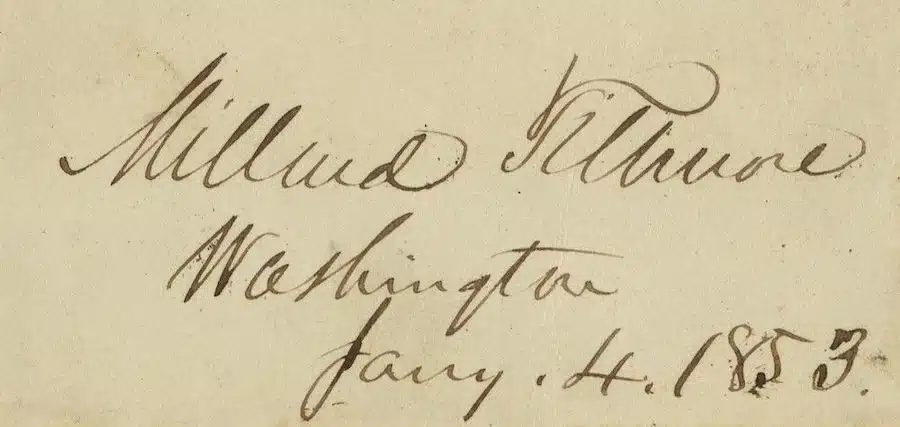 Millard Fillmore
Washington
Jany. 4. 1853.